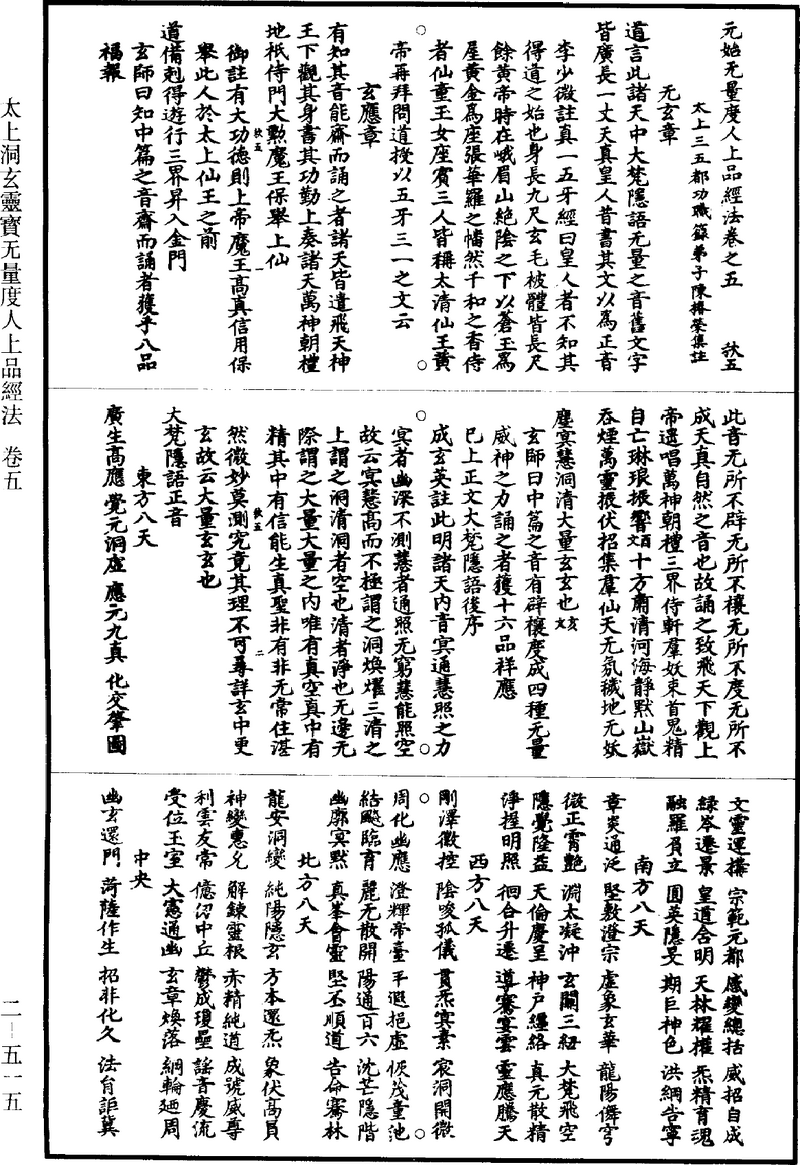 元始无量度人上品經法卷之五　扶五
太上三五都功職籙弟子陳椿榮集註
无玄章
道言此諸天中大梵隱語无量之音舊文字
皆廣長一丈天真皇人昔書其文以為正音
李少微註真一五牙經曰皇人者不知其
得道之始也身長九尺玄毛被體皆長尺
餘黃帝時在峨眉山絕陰之下以蒼玉為
屋黃金為座張華羅之幡然千和之香侍
者仙童玉女座賓三人皆稱太清仙王黃
帝再拜問道授以五牙三一之文云
玄應章
有知其音能齋而誦之者諸天皆遣飛天神
王下觀其身書其功勤上奏諸天萬神朝禮
地祇侍門大勲魔王保舉上仙
扶五　一
御註有大功德則上帝魔王高真信用保
舉此人於太上仙王之前
道備剋得遊行三界昇入金門
玄師曰知中篇之音齋而誦者獲乎八品
福報
此音无所不辟无所不禳无所不度无所不
成天真自然之音也故誦之致飛天下觀上
帝遥唱萬神朝禮三界侍軒羣妖束首鬼精
自亡琳琅振響十方肅清河海靜默山嶽
吞煙萬靈振伏招集羣仙天无氛穢地无妖
塵冥慧洞清大量玄玄也
玄師曰中篇之音有辟禳度成四種无量
威神之力誦之者獲十六品祥應
已上正文大梵隱語後序
成玄英註此明諸天内音冥通慧照之力
冥者幽深不測慧者通照无窮慧能照空
故云冥慧高而不極謂之洞煥燿三清之
上謂之洞清洞者空也清者淨也无邊无
際謂之大量大量之内唯有真空真中有
精其中有信能生真聖非有非无常住湛
扶五　二
然微妙莫測究竟其理不可尋詳玄中更
玄故云大量玄玄也
大梵隱語正音
東方八天
廣生高應　覺元洞虛　應元九真　化交肇圖
文靈運攝　宗範元都　感變總括　威招自成
緑岑遷景　皇道含明　天林耀權　炁精育魂
融羅負立　圓英隱旻　期巨神色　洪綱告寧
南方八天
章炎通泛　堅敷澄宗　虛象玄華　龍陽儛穹
徴正霄艶　淵太凝沖　玄關三紐　大梵飛空
隱覺隆益　天倫慶呈　神户緾絡　真元散精
淨握明照　徊合升遷　導騫宴雲　靈應騰天
西方八天
剛澤徽控　陰唆孤儀　貫炁冥素　宸洞開微
周化幽應　澄輝帝臺　平遐挹虛　恢茂童池
結颷臨育　麗无散開　陽通百六　沈芒隱階
幽廓冥默　真峯會靈　堅丕順道　告命騫林
北方八天
龍安洞變　純陽隱玄　方本還炁　象伏高員
神變惠允　解鍊靈根　赤精純道　成號威尊
利雲友常　億沼中丘　鬱成瓊壘　謡音慶流
受位玉室　大憲通幽　玄章煥落　綱輪廻周
中央
幽玄還門　菏薩作生　招非化久　法台詎冀
太上洞玄靈寶无量度人上品經法　卷五
二—五一五